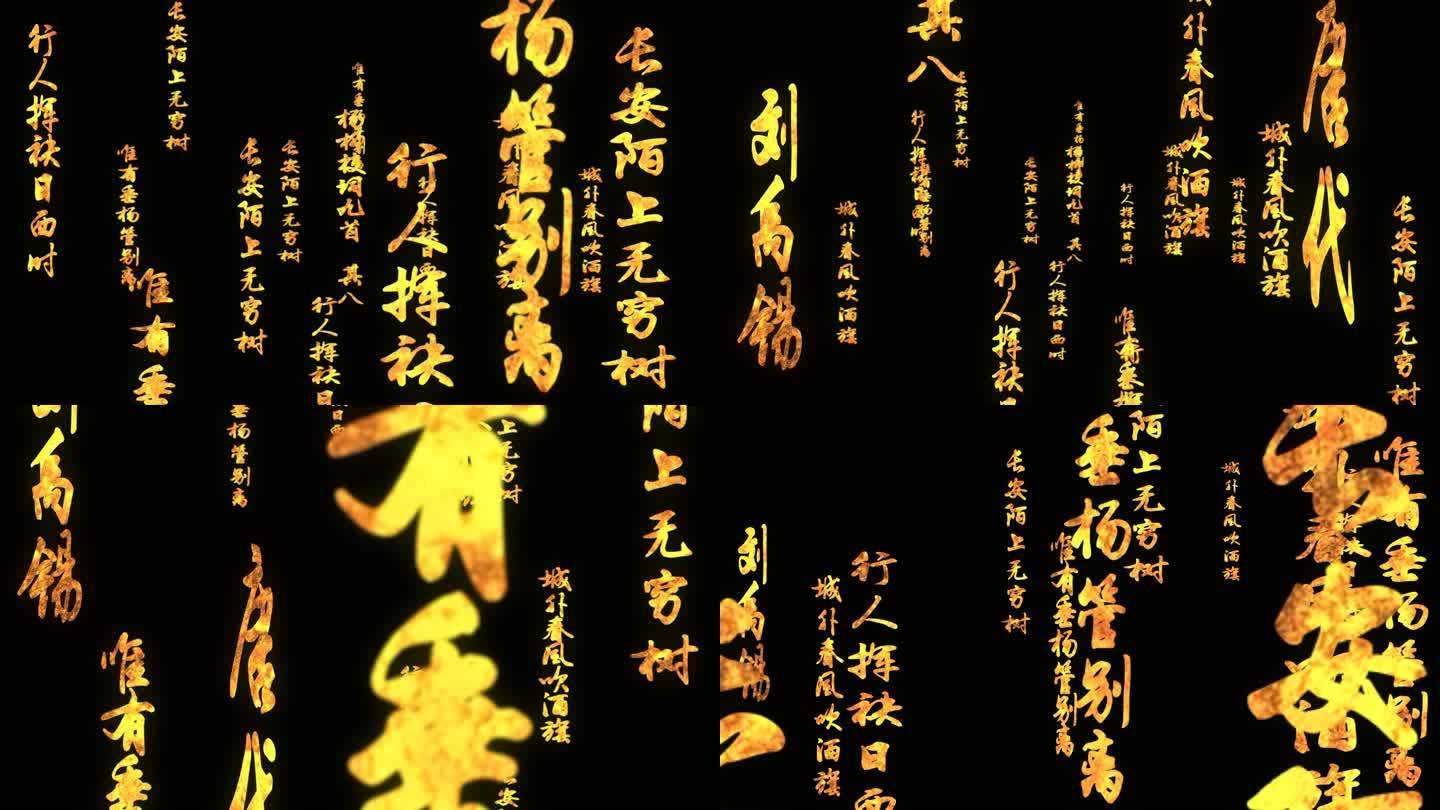 行人挥袂日西时
长安陌上无穷树
唯有垂杨管别离
唯有垂
长安陌上无穷树
长安陌上无穷树
行人挥袂日
词九首 其八
行人挥袂
杨管别离
城外春风吹酒旗
长安陌上无穷树
刘禹锡
城外春风吹酒旗
其八
长安陌上无穷树
行人挥袂
长安陌上无穷树
行人挥袂日西时
行人挥袂日西时
城外春风吹酒旗
城外春风吹酒旗
城外春风吹酒旗
城外春风吹酒旗
唐代
长安陌上无穷树
禹锡
垂杨管别离
唯有垂
唐代
有垂
城外春风吹酒旗
陌上无穷树
刘禹锡
城外春风吹酒旗
行人挥袂日西
长安陌上无穷树
唯有垂杨管别离
垂杨管别离
陌上无穷树
城外春风吹酒旗
长安
唯有垂杨管别离